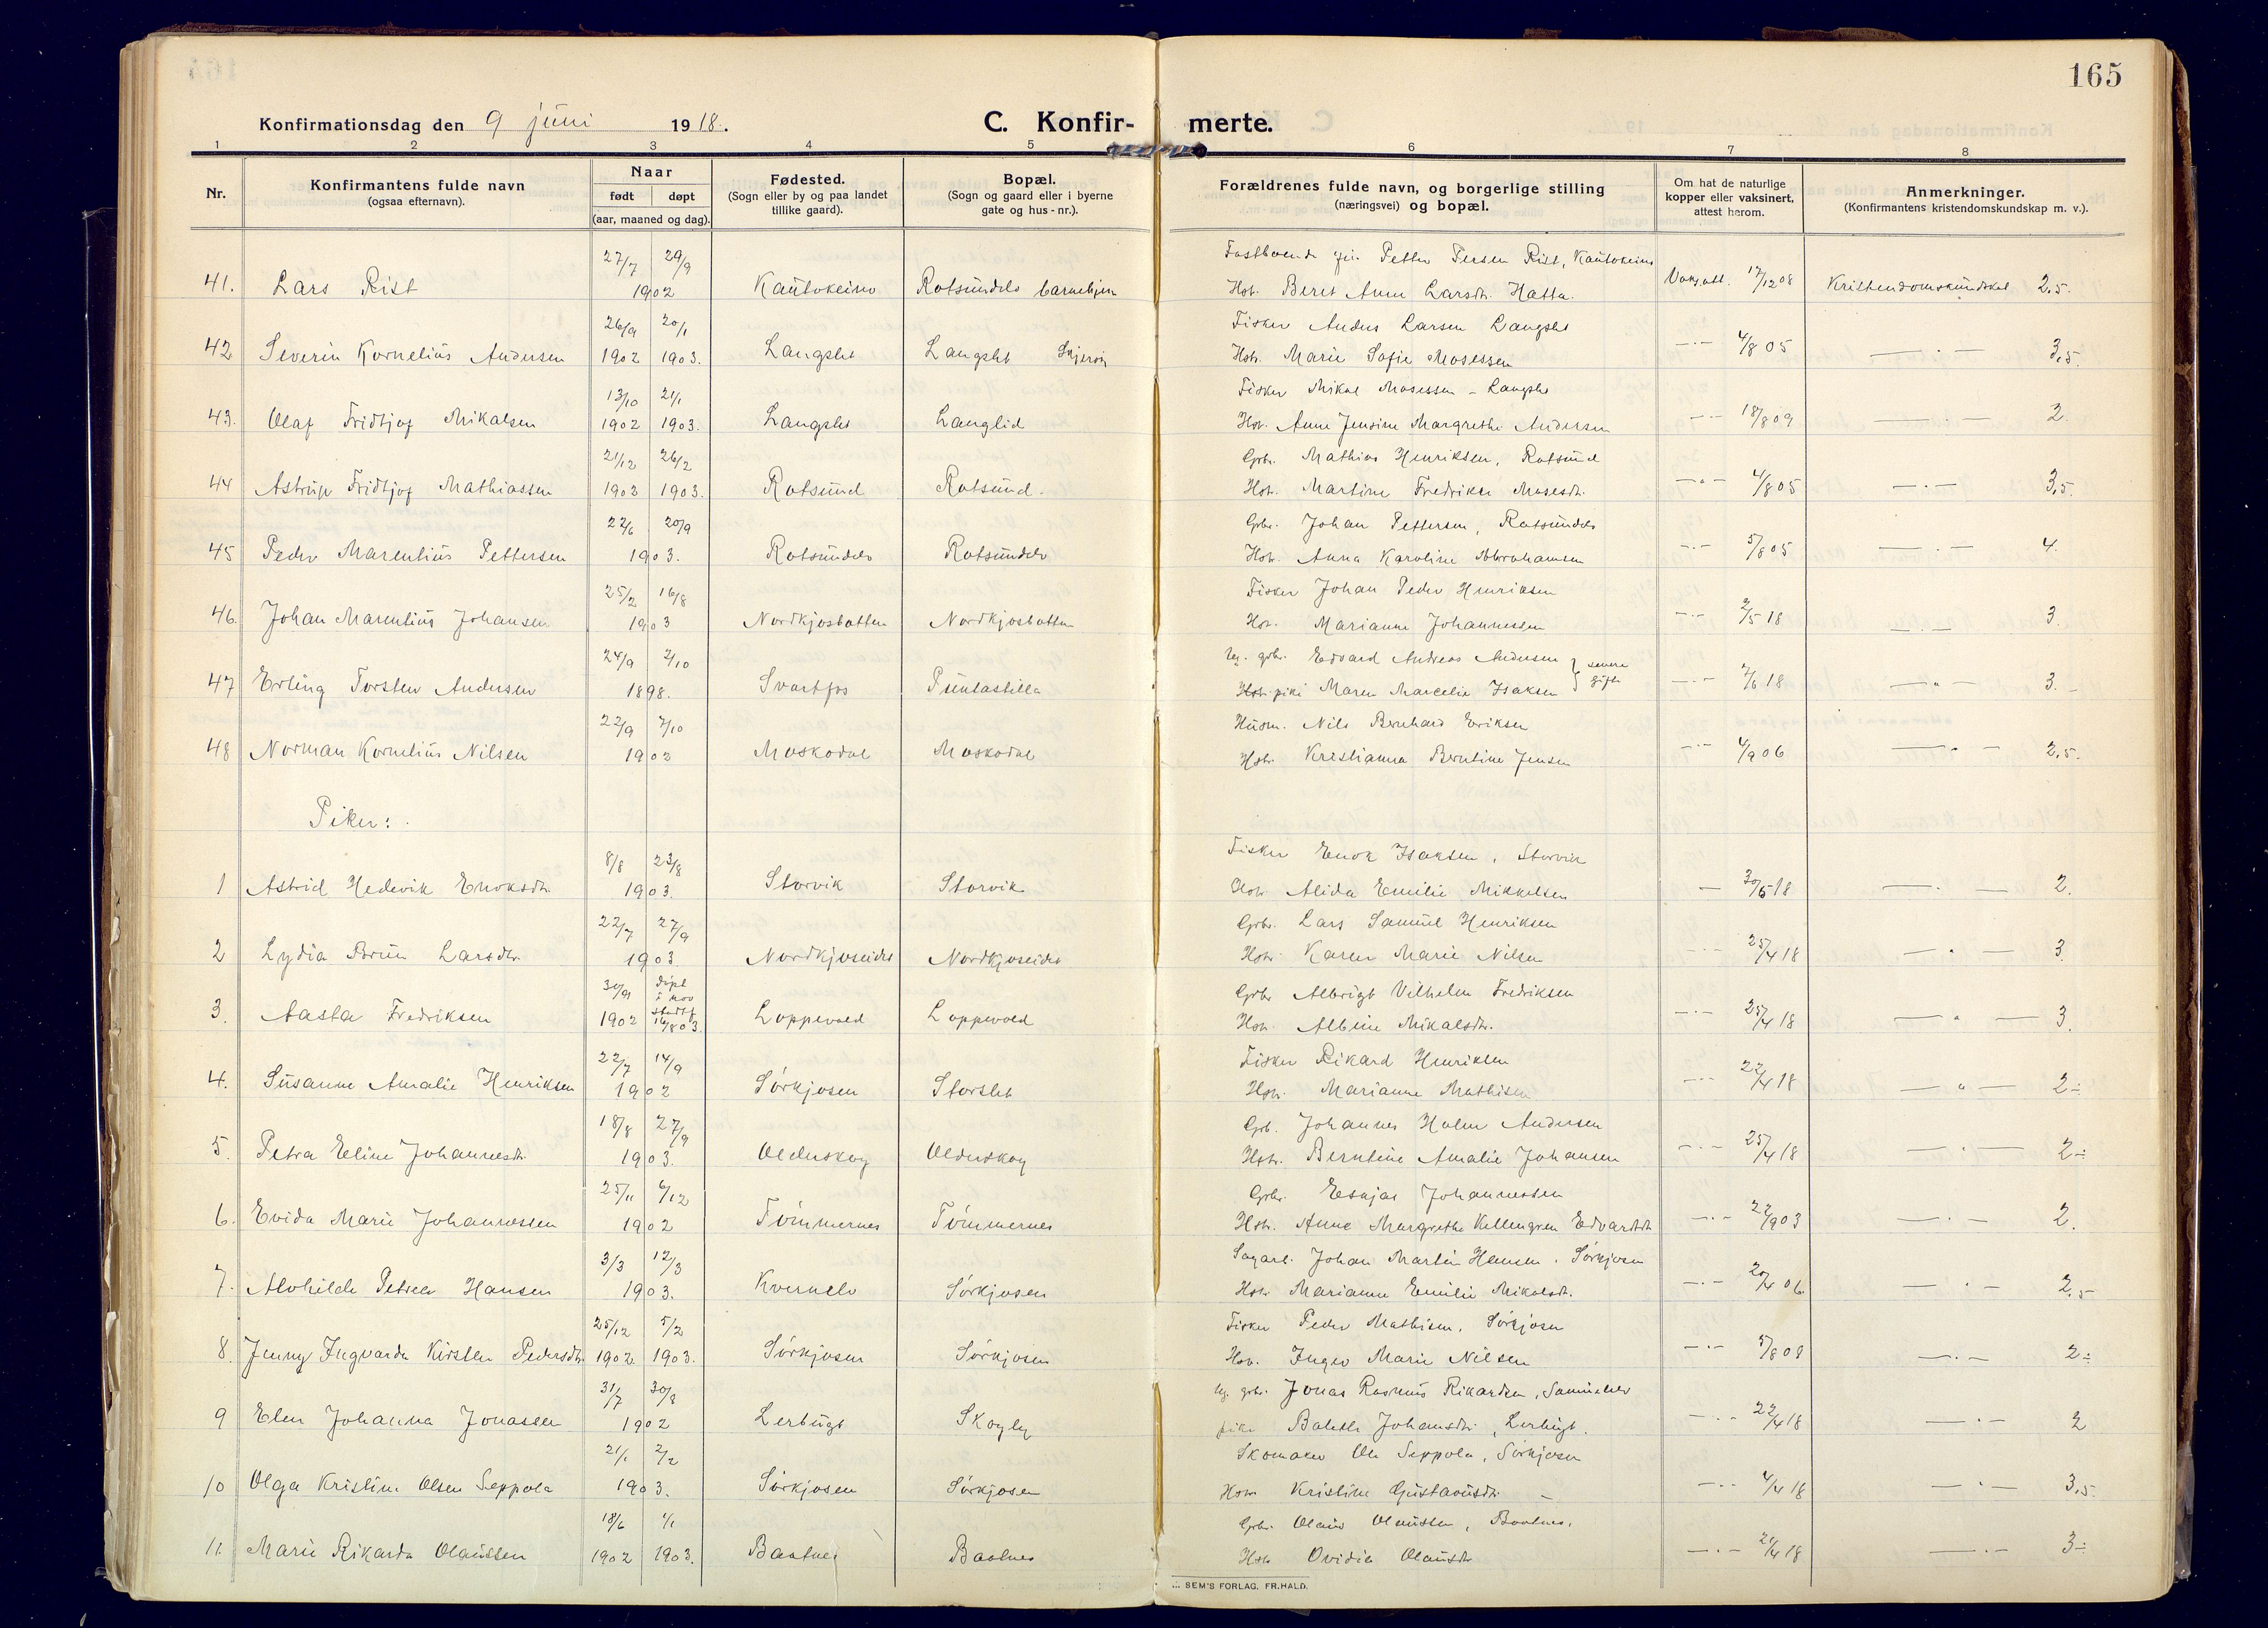 165
Konfirmationsdag den 9 juni 1918.
C. Konfirmerte.
1 2 3 4 5 6 7 8
Nr.
Konfirmantens fulde navn
(ogsaa efternavn).
Naar
født døpt
(aar, maaned og dag).
Fødested.
(Sogn eller by og paa landet
tillike gaard).
Bopæl.
(Sogn og gaard eller i byerne
gate og hus-nr.).
Forældrenes fulde navn, og borgerlige stilling
(næringsvei) og bopæl.
Om hat de naturlige
kopper eller vaksinert,
attest herom.
Anmerkninger.
(Konfirmantens kristendomskundskap m. v.).
27/7 29/9 Petter Persen Rist, Kautokeino
41. Lars Rist 1902 Kautokeino Rotsundelv barnehjem Hst. Beret Anne Larsdtr. Hætta. Vaks.att. 17/12 08 Kristendomskundskab 2,5.
26/9 20/1 Fisker Anders Larsen Langslet
42 Severin Kornelius Andersen 1902 1903. Langslet Langslet Skjervøy Hstr. Marie Sofie Mosessen —·— 4/8 05 —·— 3,5.
13/10 21/1 Fisker Mikal Mosessen - Langslet
43. Olaf Fridtjof Mikalsen 1902 1903. Langslet Langlid Hst. Anne Jensine Margrethe Andersen —·— 18/8 09 —·— 2.
21/12 26/2 Grbr. Mathias Henriksen, Rotsund
44 Astrup Fridtjof Mathiassen 1902 1903. Rotsund Rotsund. Hst. Martine Fredrikke Mosesdtr. —·— 4/8 05 —·— 3,5.
22/6 20/9 Grbr. Johan Pettersen, Rotsundelv
45 Peder Marentius Pettersen 1903. Rotsundelv Rotsundelv Hstr. Anna Karoline Abrahamsen —·— 5/8 05 —·— 4.
25/2 16/8 Fisker Johan Peder Henriksen
46. Johan Marentius Johansen 1903 Nordkjosbotten Nordkjosbotten Hst. Marianne Johannessen —·— 2/5 18 —·— 3.
24/9 2/10 Ug. grbr. Edvard Andreas Andersen } senere
47 Erling Torsten Andersen 1898. Svartfos Puntastilla pike Maren Marcelie Isaksen } gifte —·— 7/6 18 —"— 3.
22/9 7/10 Husm. Nils Bernhard Eriksen
48 Norman Kornelius Nilsen 1902 Moskodal Moskodal Hstr. Kristianna Berntine Jensen —·— 4/9 06 —·— 2,5.
Piker:
8/8 23/8 Fisker Enok Isaksen, Storvik
1 Astrid Hedevik Enoksdtr. 1903. Storvik Storvik Hstr. Alida Emilie Mikkelsen — 30/5 18 —·— 2.
22/7 27/9 Grbr. Lars Samuel Henriksen
2 Lydia Brun Larsdtr. 1903. Nordkjoseidet Nordkjoseidet Hstr. Karen Marie Nilsen —·— 25/4 18 —·— 3.
30/9 døpt i nov Grbr. Albrigt Vilhelm Fredriksen
3. Aasta Fredriksen 1902 stadf. 16/8 03. Loppevold Loppevold Hstr. Albine Mikalsdtr. —·— 25/4 18 —"— 3.
22/7 14/9 Fisker Rikard Henriksen
4. Susanne Amalie Henriksen 1902 Sörkjosen Storslet Hstr. Marianne Mathisen —·— 22/4 18 —"— 2÷
18/8 27/9 Grb. Johannes Holm Andersen
5. Petra Eline Johannesdtr. 1903. Olderskog Olderskog Hstr. Berntine Amalie Johansen —·— 25/4 18 —·— 2÷
25/11 6/12 Grbr. Esajas Johannessen
6. Evida Marie Johannessen 1902 Tömmernes Tömmernes Hstr. Anne Margrethe Kellengren Edvardsdtr —·— 22/9 03 —·— 2.
3/3 12/3 Sagarb. Johan Martin Hansen, Sörkjosen
7. Alvhilde Petrea Hansen 1903. Kvernelv Sörkjosen Hstr. Marianne Emilie Mikalsdtr. —·— 20/4 06. —·— 2,5
25/12 5/2 Fisker Peder Mathisen, Sörkjosen
8. Jenny Ingvarda Kirsten Pedersdtr. 1902 1903. Sörkjosen Sörkjosen Hstr. Inger Marie Nilsen —·— 5/8 08 —·— 2÷
31/7 30/8 Ug. grbr. Jonas Rasmus Rikardsen, Samuelelv
9 Elen Johanna Jonassen 1902 Lerbugt Skogly pike Johansdtr., Lerbugt. —·— 22/4 18 —·— 2
21/1 2/2 Skomaker Ole Seppola, Sörkjosen
10 Olga Kristine Olsen Seppola 1903. Sörkjosen Sörkjosen Hstr. Kristine Gustavusdtr. — —·— 4/4 18 —·— 3,5.
18/6 1/1 Grbr. Olaus Olaussen, Baatnes.
11. Marie Rikarda Olaussen 1902 1903. Baatnes Baatnes Hstr. Ovidie Olausdtr —·— 22/4 18 —·— 3÷
SEM'S FORLAG, FR.HALD.